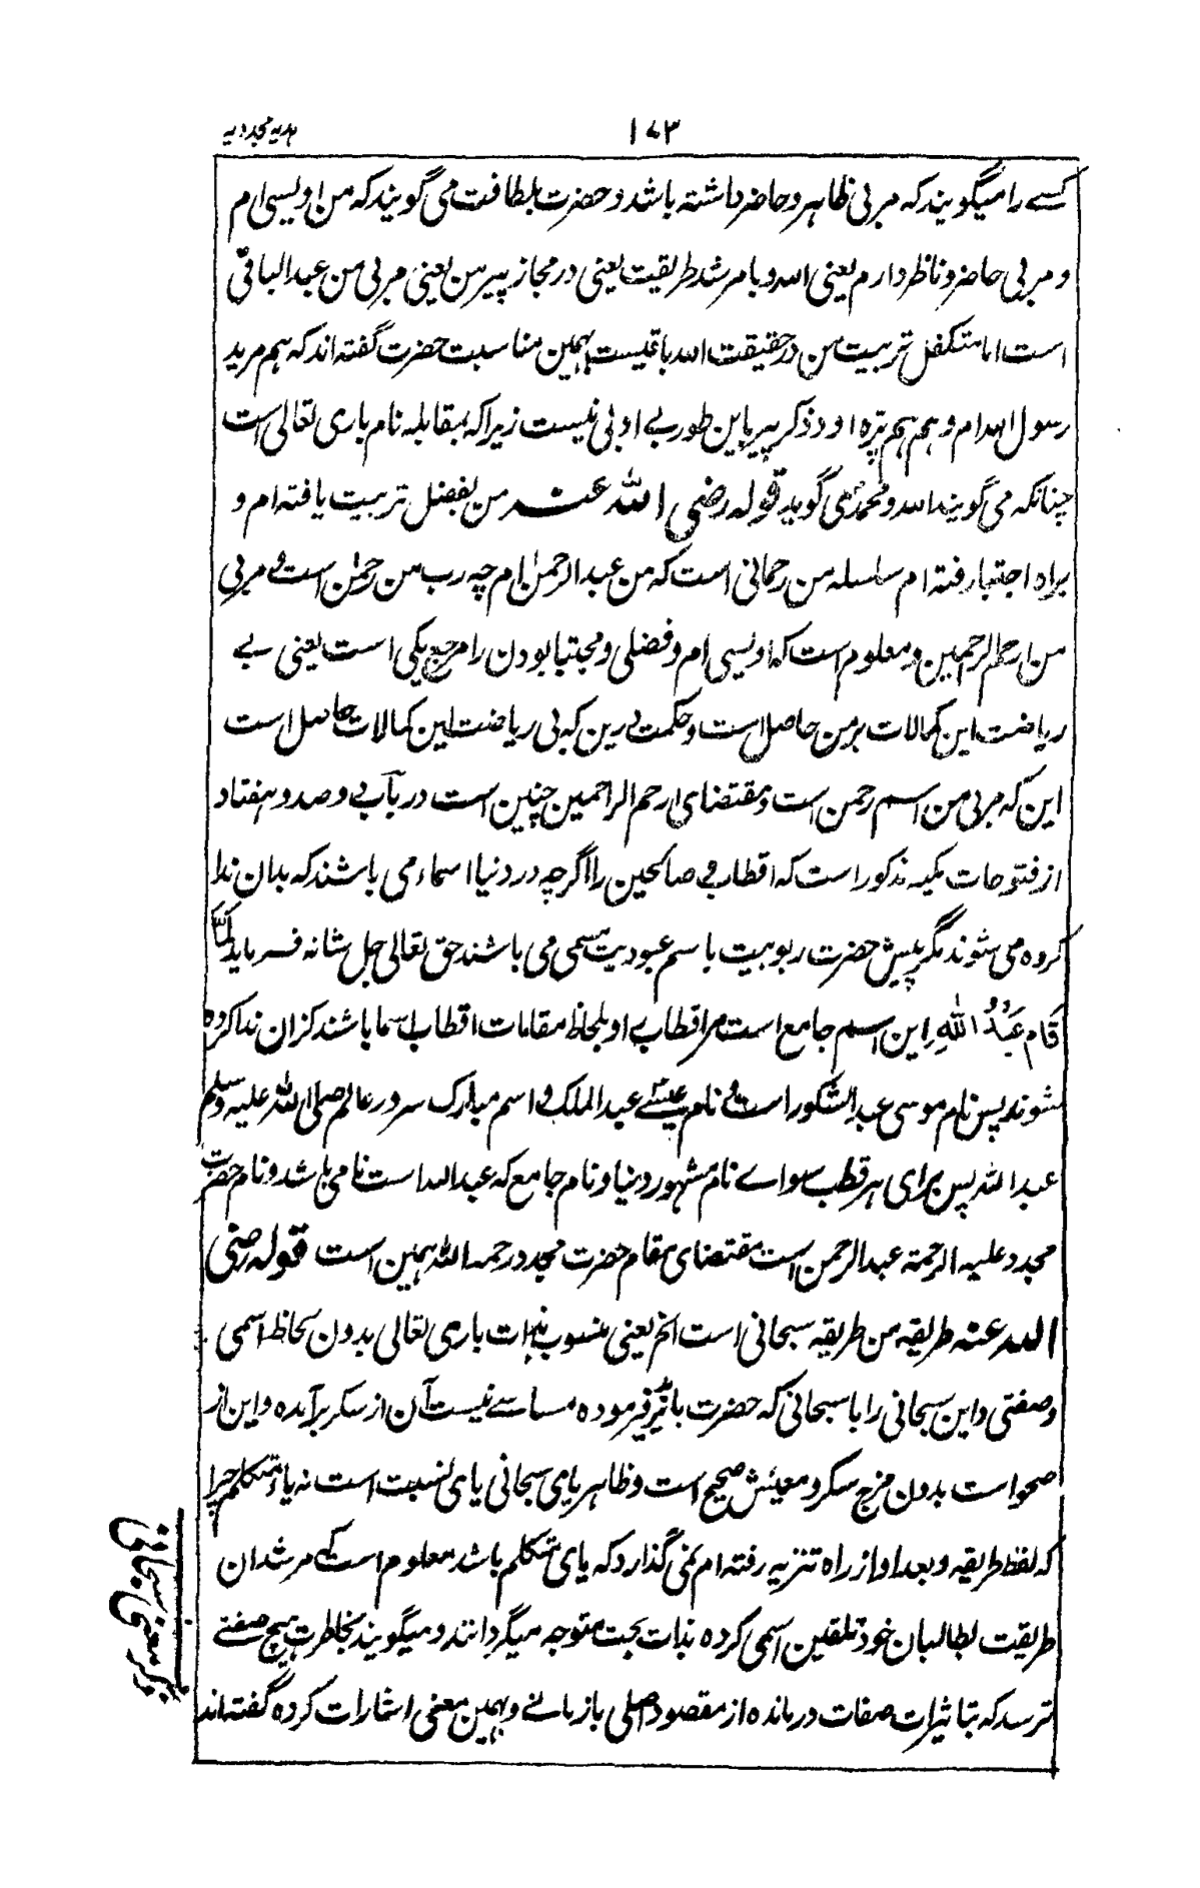 ہدیہ مجددیہ
۱۷۳
کسے را میگویند کہ مربی ظاہر و حاضر داشتہ باشد و حضرت بلطافت می گویند کہ من اویسی ام
و مربی حاضر و ناظر دارم یعنی اللہ و با مرشد طریقت یعنی در مجاز پیر من یعنی مربی من عبد الباقی
است اما متکفل تربیت من در حقیقت اللہ باقیست بہمین مناسبت حضرت گفتہ اند کہ ہم مرید
رسول اللہ ام و ہم ہم پیرہ او و ذکر پیر باین طور بے ادبی نیست زیرا کہ بمقابلہ نام باری تعالی است
چنانکہ می گویند اللہ و محمد می گوید قولہ رضی اللہ عنہ من بفضل تربیت یافتہ ام و
براہ اجتبا رفتہ ام سلسلہ من رحمانی است کہ من عبد الرحمن ام چہ رب من رحمن است و مربی
من ارحم الرحمین و معلوم است کہ اویسی ام و فضلی و مجتبا بودن را مرجع یکی است یعنی بے
ریاضت این کمالات بر من حاصل است و حکمت درین کہ بی ریاضت این کمالات حاصل است
این کہ مربی من اسم رحمن است و مقتضای ارحم الراحمین چنین است در باب دو صد و ہفتاد
از فتوحات مکیہ مذکور است کہ اقطاب و صالحین را اگرچہ در دنیا اسماء می باشند کہ بدان ندا
کردہ می شوند مگر پیش حضرت ربوبیت باسم عبودیت مسمی می باشند حق تعالی جل شانہ فرماید لَمَّا
قَامَ عَبْدُ اللّٰهِ این اسم جامع است مر اقطاب او بلحاظ مقامات اقطاب اسما باشند کزان ندا کردہ
شوند پس نام موسی عبد الشکور است و نام عیسے عبد الملک و اسم مبارک سرور عالم صلی اللہ علیہ وسلم
عبد اللہ پس برای ہر قطب سواے نام مشہور دنیا و نام جامع کہ عبد اللہ است نامی باشد و نام حضرت
مجدد علیہ الرحمۃ عبد الرحمن است مقتضای مقام حضرت مجدد رحمہ اللہ ہمین است قولہ رضی
اللہ عنہ طریقہ من طریقہ سبحانی است الخ یعنی منسوب بذات باری تعالی بدون لحاظ اسمی
و صفتی و این سبحانی را با سبحانی کہ حضرت بایزید فرمودہ مساسے نیست آن از سکر برآمدہ و این از
صحو است بدون مزج سکر و معنیش صحیح است و ظاہر یای سبحانی یای نسبت است نہ یاء متکلم چرا
کہ لفظ طریقہ و بعد او از راہ تنزیہ رفتہ ام نمی گذارد کہ یای متکلم باشد معلوم است کہ مرشدان
طریقت بطالبان خود تلقین اسمی کردہ بذات بحت متوجہ میگردانند و میگویند بخاطرت ہیچ صفتے
نرسد کہ بتاثیرات صفات درماندہ از مقصود اصلی باز مانے و بہمین معنی اشارات کردہ گفتہ اند
ذکر معنی سبحانی